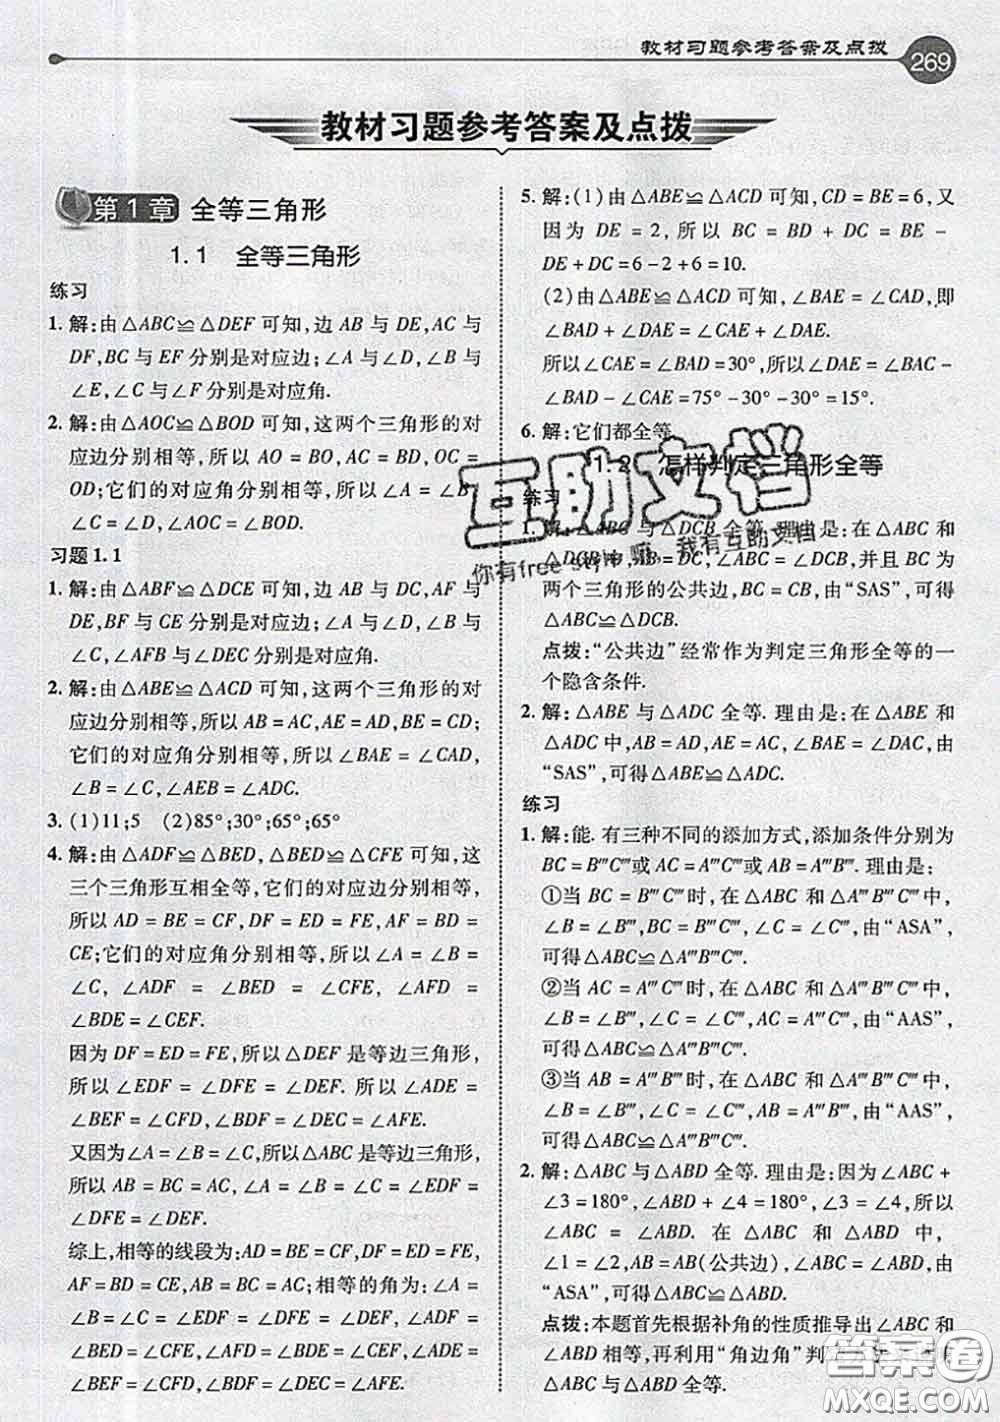 教材习题参考答案及点拨
269
教材习题参考答案及点拨
第1章 全等三角形
1.1 全等三角形
练习
1. 解:由△ABC≌△DEF可知,边AB与DE,AC与
DF,BC与EF分别是对应边;∠A与∠D,∠B与
∠E,∠C与∠F分别是对应角.
2. 解:由△AOC≌△BOD可知,这两个三角形的对
应边分别相等,所以AO=BO,AC=BD,OC=
OD;它们的对应角分别相等,所以∠A=∠B,
∠C=∠D,∠AOC=∠BOD.
习题1.1
1. 解:由△ABF≌△DCE可知,边AB与DC,AF与
DE,BF与CE分别是对应边;∠A与∠D,∠B与
∠C,∠AFB与∠DEC分别是对应角.
2. 解:由△ABE≌△ACD可知,这两个三角形的对
应边分别相等,所以AB=AC,AE=AD,BE=CD;
它们的对应角分别相等,所以∠BAE=∠CAD,
∠B=∠C,∠AEB=∠ADC.
3. (1)11;5 (2)85°;30°;65°;65°
4. 解:由△ADF≌△BED,△BED≌△CFE可知,这
三个三角形互相全等,它们的对应边分别相等,
所以AD=BE=CF,DF=ED=FE,AF=BD=
CE;它们的对应角分别相等,所以∠A=∠B=
∠C,∠ADF=∠BED=∠CFE,∠AFD=
∠BDE=∠CEF.
因为DF=ED=FE,所以△DEF是等边三角形,
所以∠EDF=∠DFE=∠DEF.所以∠ADE=
∠BEF=∠CFD,∠BDF=∠DEC=∠AFE.
又因为∠A=∠B=∠C,所以△ABC是等边三角形,
所以AB=BC=AC,∠A=∠B=∠C=∠EDF=
∠DFE=∠DEF.
综上,相等的线段为:AD=BE=CF,DF=ED=FE,
AF=BD=CE,AB=BC=AC;相等的角为:∠A=
∠B=∠C=∠EDF=∠DFE=∠DEF,∠ADF=
∠BED=∠CFE,∠AFD=∠BDE=∠CEF,∠ADE=
∠BEF=∠CFD,∠BDF=∠DEC=∠AFE.
5. 解:(1)由△ABE≌△ACD可知,CD=BE=6,又
因为DE=2,所以BC=BD+DC=BE-
DE+DC=6-2+6=10.
(2)由△ABE≌△ACD可知,∠BAE=∠CAD,即
∠BAD+∠DAE=∠CAE+∠DAE.
所以∠CAE=∠BAD=30°,所以∠DAE=∠BAC-
∠BAD-∠CAE=75°-30°-30°=15°.
6. 解:它们都全等.
1.2 怎样判定三角形全等
练习
1. 解:△ABC与△DCB全等.理由是:在△ABC和
△DCB中,AB=DC,∠ABC=∠DCB,并且BC是
两个三角形的公共边,BC=CB,由“SAS”,可得
△ABC≌△DCB.
点拨:“公共边”经常作为判定三角形全等的一
个隐含条件.
2. 解:△ABE与△ADC全等.理由是:在△ABE和
△ADC中,AB=AD,AE=AC,∠BAE=∠DAC,由
“SAS”,可得△ABE≌△ADC.
练习
1. 解:能.有三种不同的添加方式,添加条件分别为
BC=B‴C‴或AC=A‴C‴或AB=A‴B‴.理由是:
①当BC=B‴C‴时,在△ABC和△A‴B‴C‴中,
∠B=∠B‴,BC=B‴C‴,∠C=∠C‴,由“ASA”,
可得△ABC≌△A‴B‴C‴.
②当AC=A‴C‴时,在△ABC和△A‴B‴C‴中,
∠B=∠B‴,∠C=∠C‴,AC=A‴C‴,由“AAS”,
可得△ABC≌△A‴B‴C‴.
③当AB=A‴B‴时,在△ABC和△A‴B‴C‴中,
∠B=∠B‴,∠C=∠C‴,AB=A‴B‴,由“AAS”,
可得△ABC≌△A‴B‴C‴.
2. 解:△ABC与△ABD全等.理由是:因为∠ABC+
∠3=180°,∠ABD+∠4=180°,∠3=∠4,所以
∠ABC=∠ABD.在△ABC和△ABD中,
∠1=∠2,AB=AB(公共边),∠ABC=∠ABD,由
“ASA”,可得△ABC≌△ABD.
点拨:本题首先根据补角的性质推导出∠ABC和
∠ABD相等,再利用“角边角”判
△ABD全等.
互助文档
你有free style嘛,我有互助文档
答案圈
MXQE.COM